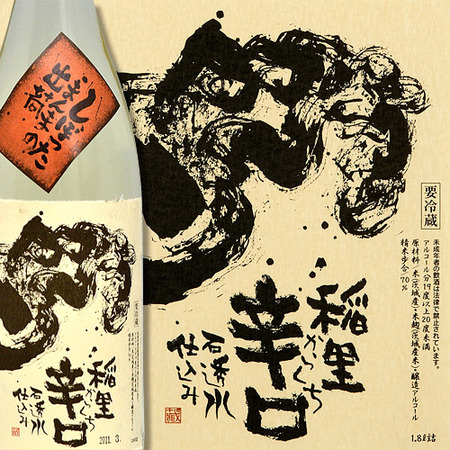 しぼった
要冷蔵
稲里
からくち
辛口
石透水
仕込み
2011. 3.
要冷蔵
未成年者の飲酒は法律で禁止されています。
アルコール分19度以上20度未満
原材料/米(茨城産)・米麹(茨城産米)・醸造アルコール
精米歩合/70%
1.8ℓ詰
稲里
からくち
辛口
石透水
仕込み